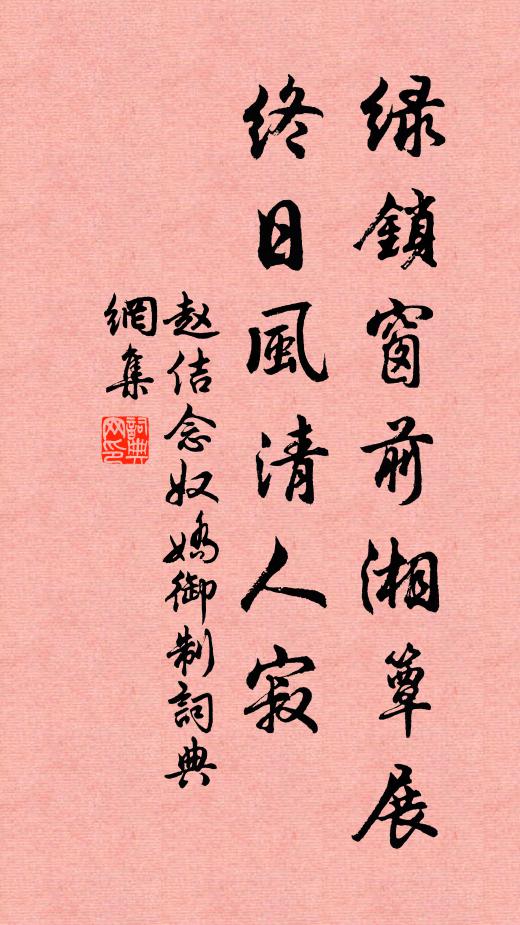 绿鎖窗前湘簟展
终日風清人寂
赵佶念奴嬌御制詞典
網集
詞典網印